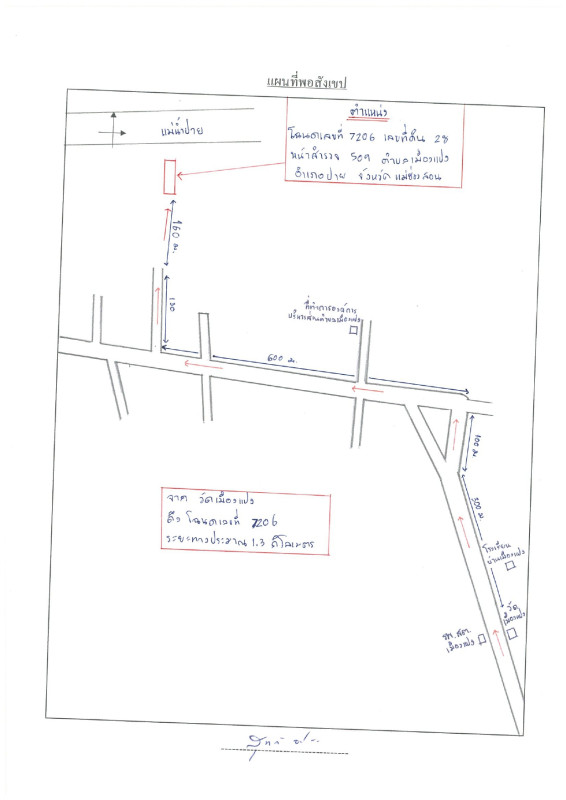 แผนที่พอสังเขป
ตำแหน่ง
โฉนดเลขที่ 7206 เลขที่ดิน 28
หน้าสำรวจ 509 ตำบลเมืองแปง
อำเภอปาย จังหวัด แม่ฮ่องสอน
แม่น้ำปาย
160 ม.
130
ที่ทำการองค์การ
บริหารส่วนตำบลเมืองแปง
600 ม.
100 ม.
300 ม.
จาก วัดเมืองแปง
ถึง โฉนดเลขที่ 7206
ระยะทางประมาณ 1.3 กิโลเมตร
โรงเรียน
บ้านเมืองแปง
วัด
เมืองแปง
รพ.สต.
เมืองแปง